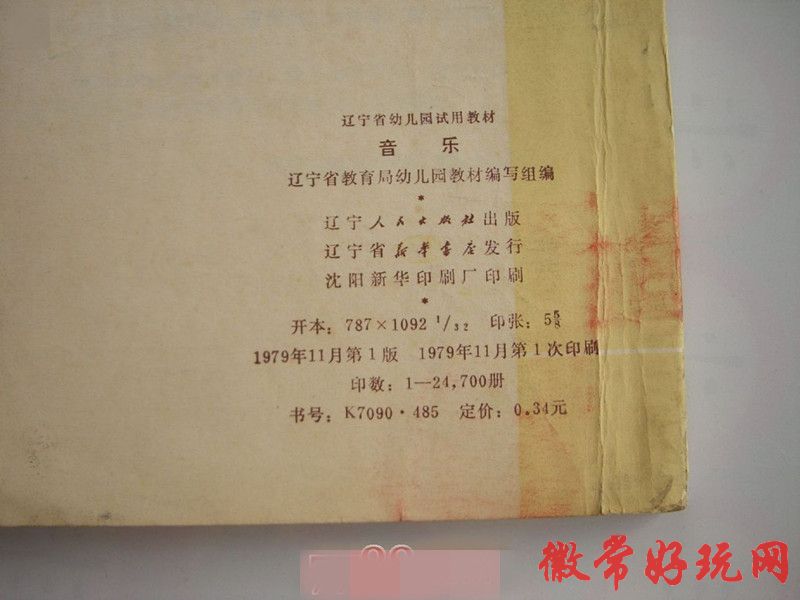 辽宁省幼儿园试用教材
音 乐
辽宁省教育局幼儿园教材编写组编
*
辽宁人民出版社出版
辽宁省新华书店发行
沈阳新华印刷厂印刷
*
开本：787×1092 1/32 印张：5 5/8
1979年11月第1版 1979年11月第1次印刷
印数：1—24,700册
书号：K7090·485 定价：0.34元
徽常好玩网